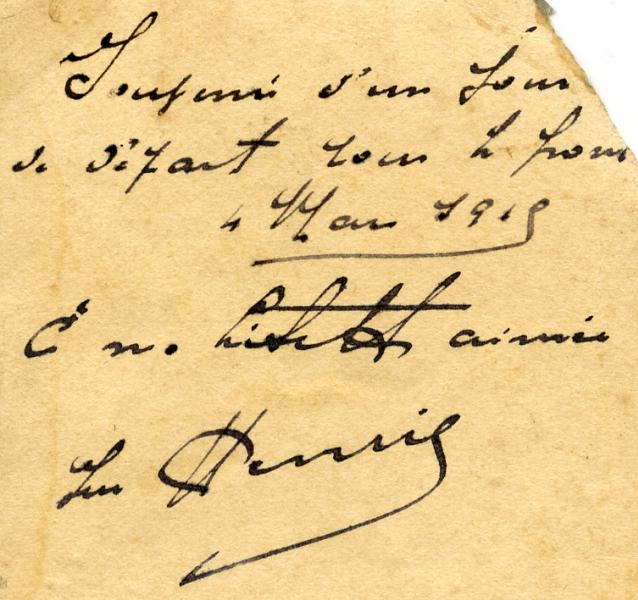 Souvenir d'un jour
de départ pour le fron
4 Mars 1915
À ma aimée
Henri